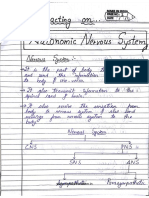 acting on...
Autonomic Nervous System
Nervous System :-
→ It is the part of body to
and send the information
to body & vice
→ It also transmit information to the
spinal cord & brain.
→ It also receive the sensation from
body to nervous system & also send
from nervous system to the
body.
Nervous System
CNS
PNS
Sympathetic
Parasympathetic